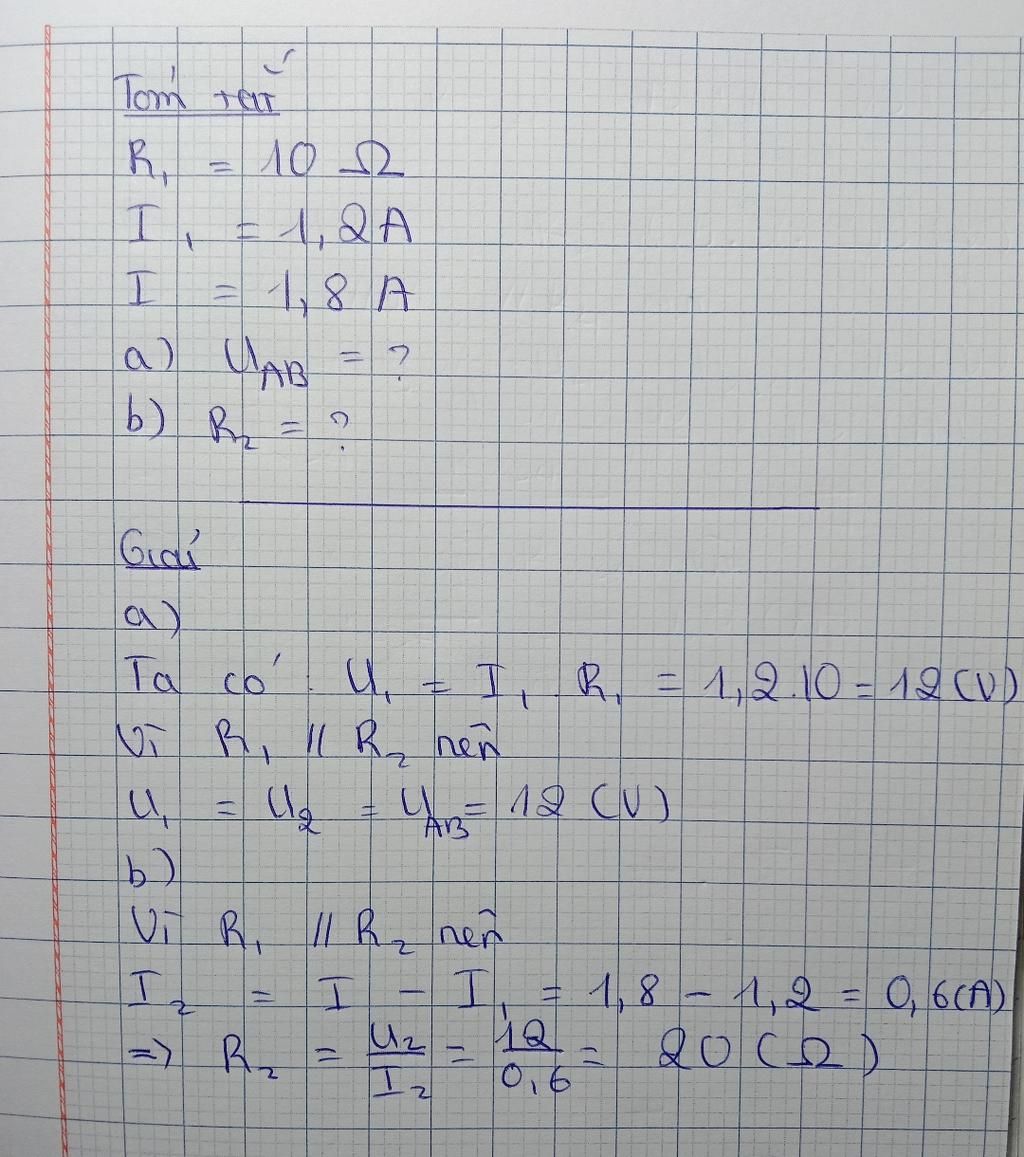 Tóm tắt
R₁ = 10 Ω
I₁ = 1,2 A
I = 1,8 A
a) U_AB = ?
b) R₂ = ?
Giải
a)
Ta có : U₁ = I₁ R₁ = 1,2.10 = 12 (V)
Vì R₁ // R₂ nên
U₁ = U₂ = U_AB = 12 (V)
b)
Vì R₁ // R₂ nên
I₂ = I - I₁ = 1,8 - 1,2 = 0,6 (A)
=> R₂ = U₂/I₂ = 12/0,6 = 20 (Ω)